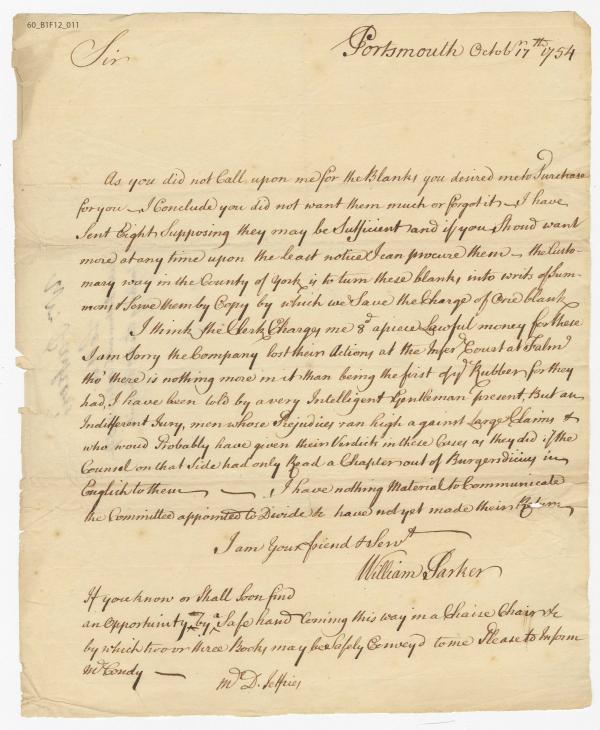 60_B1F12_011
Portsmouth Octobr. 17th. 1754
Sir
As you did not Call upon me for the Blanks you desired me to Purchase
for you — I Conclude you did not want them much or forgot it — I have
Sent Eight Supposing they may be Sufficient and if you Shoud want
more at any time upon the least notice I can procure them — the Custo-
mary way in the County of York is to turn these blanks into writs of Sum-
mons & Serve them by Copy by which we Save the Charge of One blank
I think the Clerk Charges me 8d. apiece Lawful money for these
I am Sorry the Company lost their Actions at the Inferr. Court at Falmo.
tho' there is nothing more in it than being the first of ye. Rubber for they
had, I have been told by a very Intelligent Gentleman present, But an
Indifferent Jury, men whose Prejudices ran high against Large Claims &
who woud Probably have given their Verdicts in these Cases as they did if the
Counsel on that Side had only Read a Chapter out of Burgersdicius in
English to them — — I have nothing Material to Communicate
the Committee appointed to Divide &c have not yet made their Return
I am Your friend & Servt.
William Parker
If you know or Shall Soon find
an Opportunity by a Safe hand Coming this way in a Chaise Chair &c
by which two or three Books may be Safely Convey'd to me Please to Inform
Mr Condy —
Mr D. Jeffries